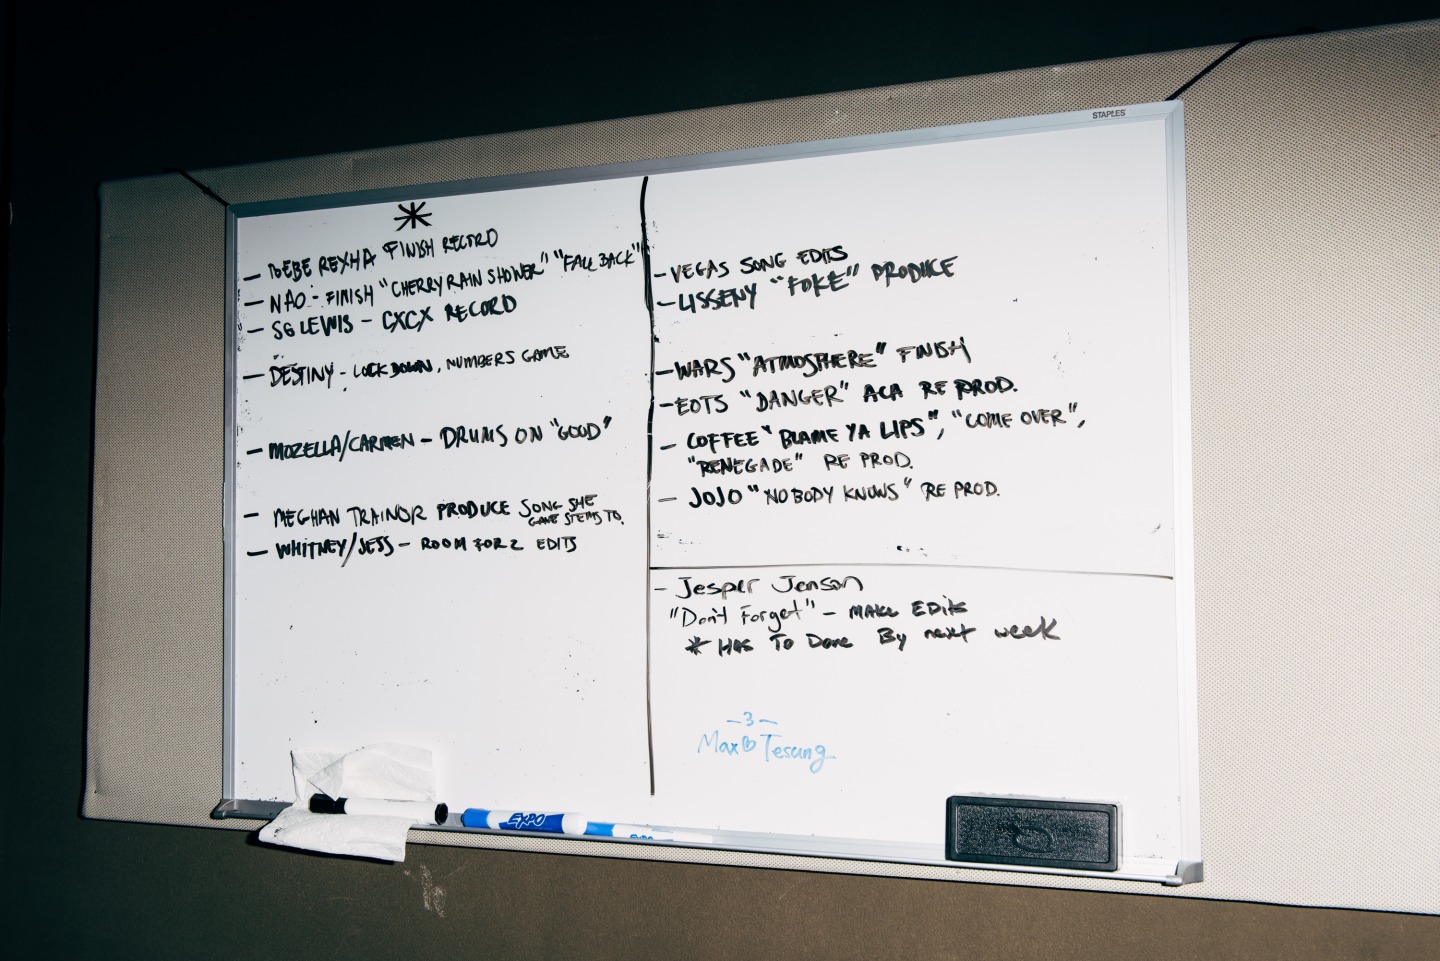 STAPLES
*
- BEBE REXHA FINISH RECORD
- NAO - FINISH "CHERRY RAIN SHOWER" "FALL BACK"
- SG LEWIS - CXCX RECORD
- DESTINY - LOCK DOWN, NUMBERS GAME
- MOZELLA/CARMEN - DRUMS ON "GOOD"
- MEGHAN TRAINOR PRODUCE SONG SHE
GAVE STEMS TO.
- WHITNEY/JESS - ROOM FOR 2 EDITS
- VEGAS SONG EDITS
- LISSENY "FOKE" PRODUCE
- WARS "ATMOSPHERE" FINISH
- EOTS "DANGER" ACA RE PROD.
- COFFEE "BLAME YA LIPS", "COME OVER",
"RENEGADE" RE PROD.
- JOJO "NOBODY KNOWS" RE PROD.
- Jesper Jenson
"Don't Forget" - MAKE EDits
* Has To Done By next week
-3-
Max♡Tesung
EXPO
EXPO